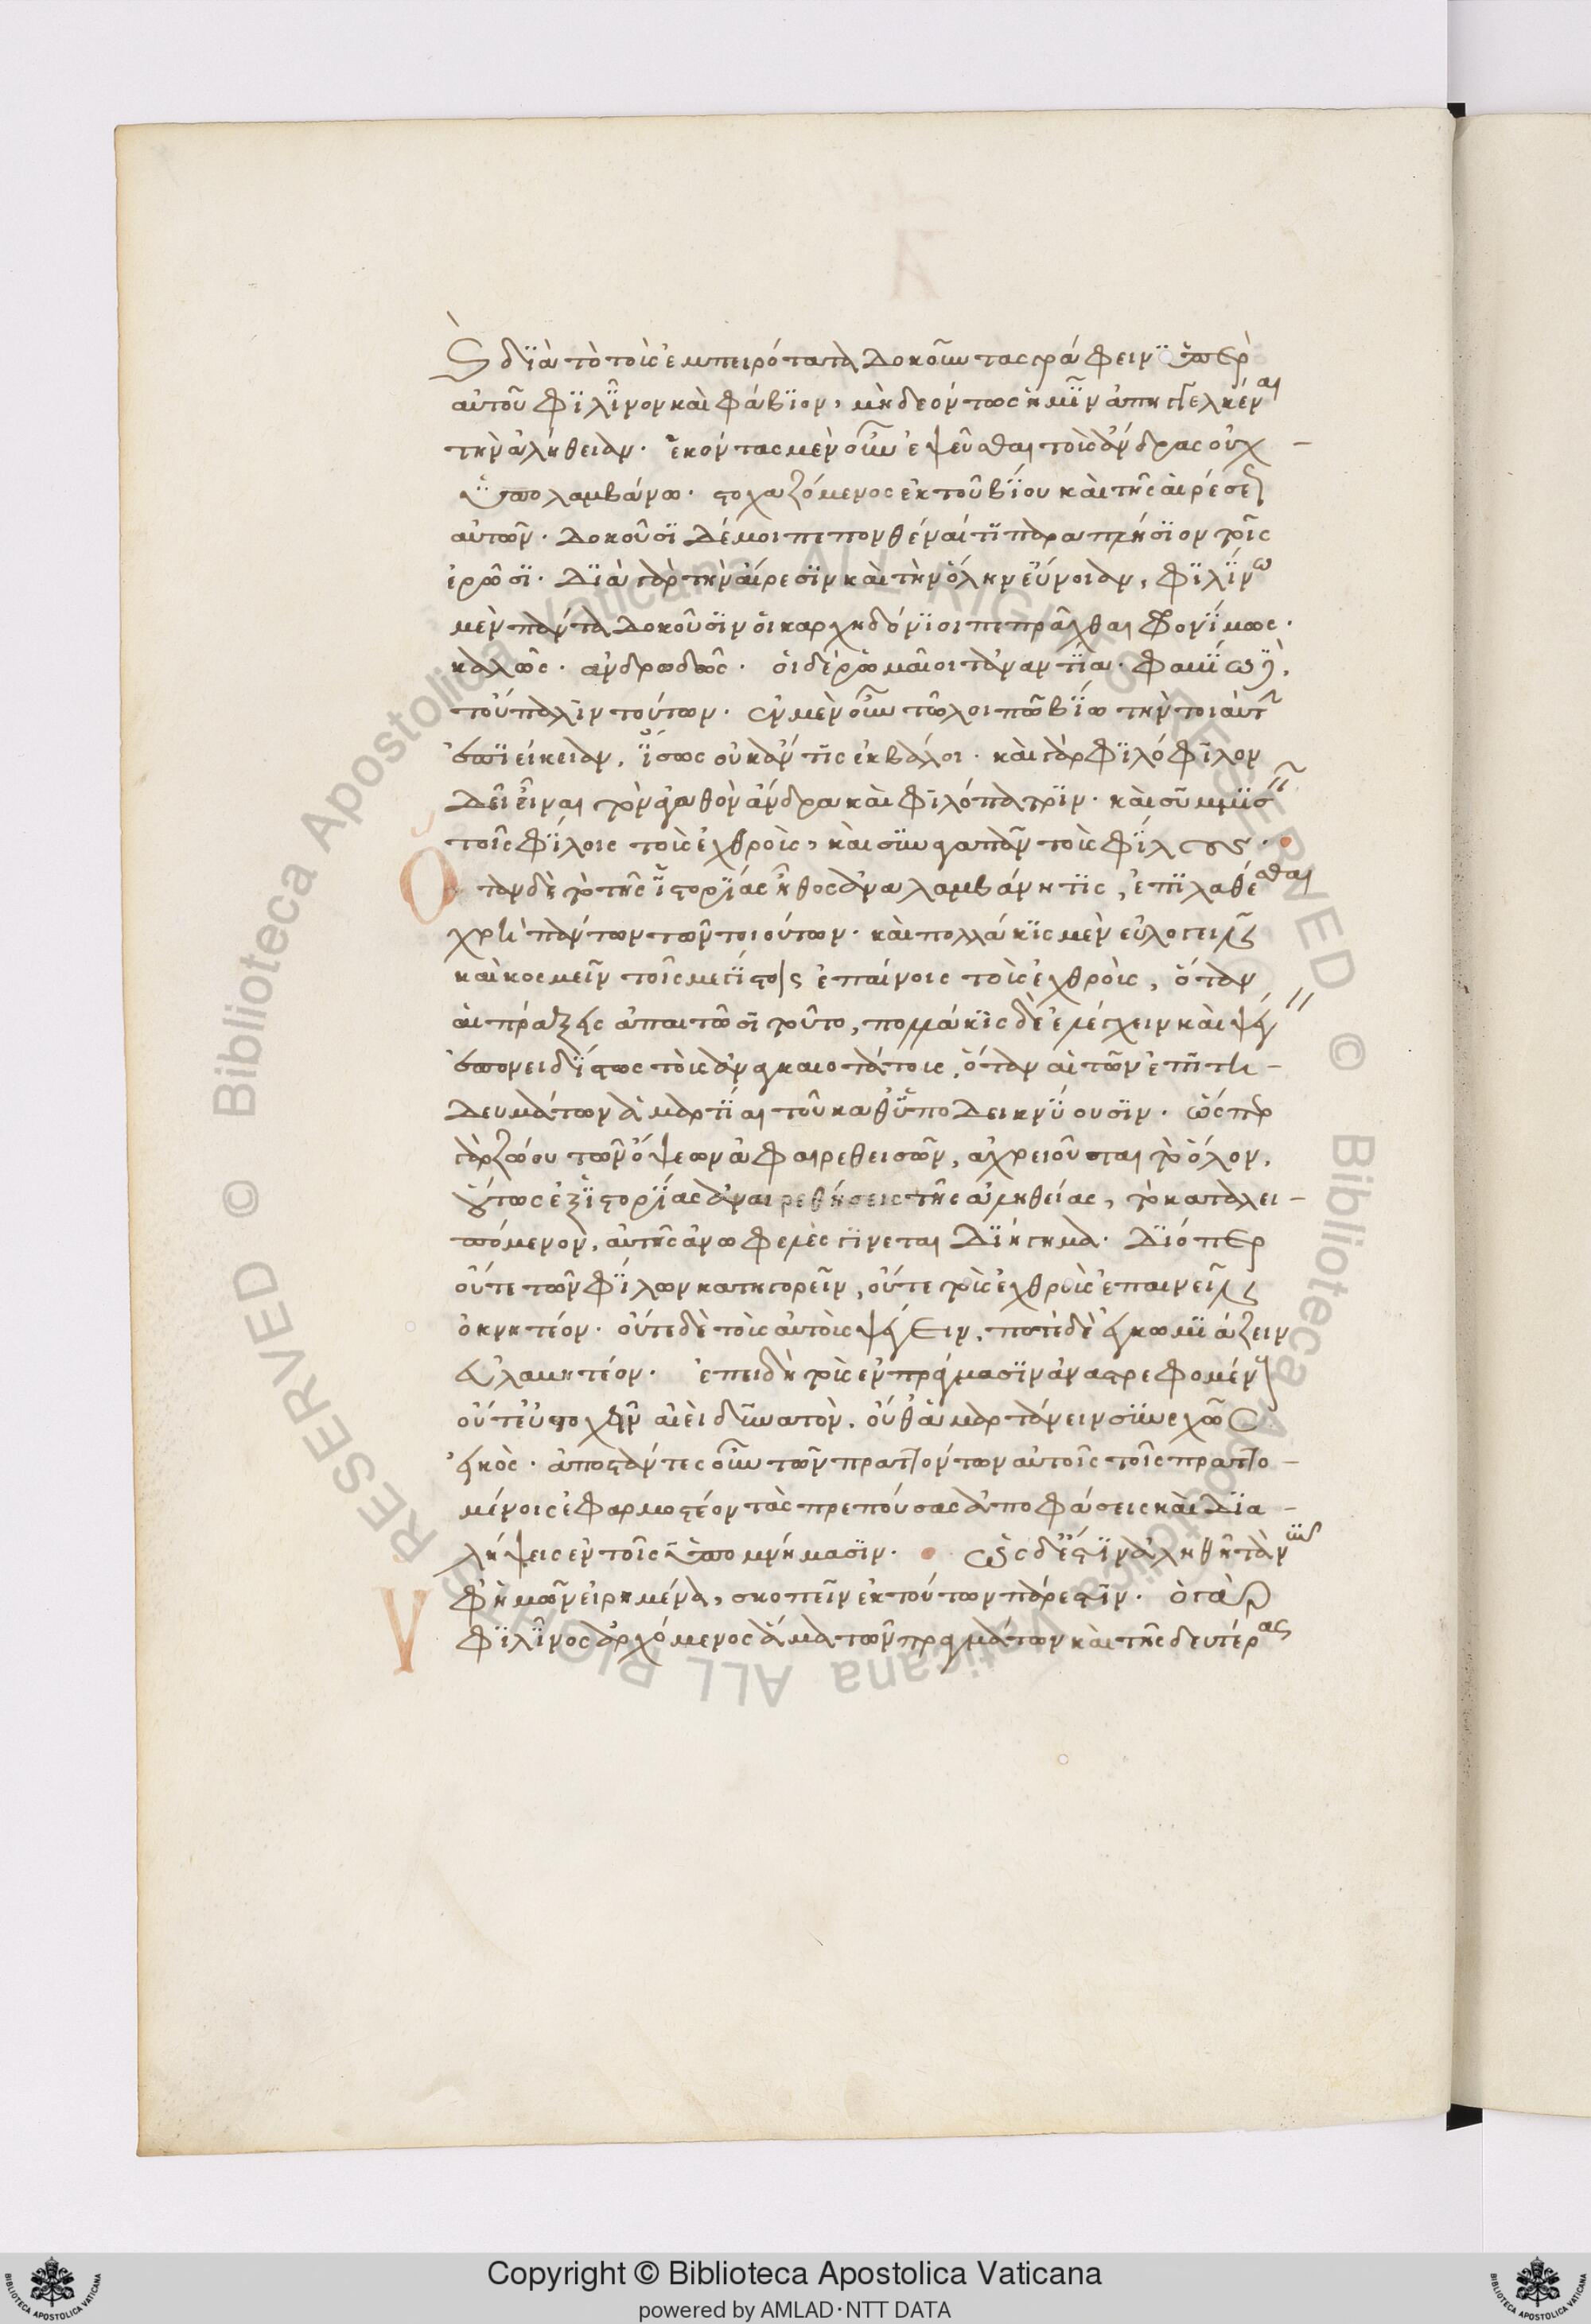 καὶ διὰ τὸ τοὺς ἐμπειρότατα δοκοῦντας γράφειν ὑπὲρ
αὐτοῦ Φιλῖνον καὶ Φάβιον, μὴ δεόντως ἡμῖν ἀπηγγελκέναι
τὴν ἀλήθειαν. ἑκόντας μὲν οὖν ἐψεῦσθαι τοὺς ἄνδρας οὐχ
ὑπολαμβάνω. στοχαζόμενος ἐκ τοῦ βίου καὶ τῆς αἱρέσεως
αὐτῶν. δοκοῦσι δέ μοι πεπονθέναι τι παραπλήσιον τοῖς
ἐρῶσι. διὰ γὰρ τὴν αἵρεσιν καὶ τὴν ὅλην εὔνοιαν, Φιλίνω
μὲν πάντα δοκοῦσιν οἱ Καρχηδόνιοι πεπρᾶχθαι φρονίμως.
καλῶς. ἀνδρωδῶς. οἱ δὲ Ῥωμαῖοι τἀναντία. Φαβίω δὲ,
τοὔπαλιν τούτων. ἐν μὲν οὖν τῶ λοιπῶ βίω τὴν τοιαύτην
ἐπιείκειαν, ἴσως οὐκ ἄν τις ἐκβάλοι. καὶ γὰρ φιλόφιλον
δεῖ εἶναι τὸν ἀγαθὸν ἄνδρα καὶ φιλόπατριν. καὶ συμμισεῖν
τοῖς φίλοις τοὺς ἐχθροὺς, καὶ συναγαπᾶν τοὺς φίλους.
Ὅταν δὲ τὸ τῆς ἱστορίας ἦθος ἀναλαμβάνη τις, ἐπιλαθέσθαι
χρὴ πάντων τῶν τοιούτων. καὶ πολλάκις μὲν εὐλογεῖν
καὶ κοσμεῖν τοῖς μεγίστοις ἐπαίνοις τοὺς ἐχθροὺς, ὅταν
αἱ πράξεις ἀπαιτῶσι τοῦτο, πολλάκις δὲ ἐλέγχειν καὶ ψέγειν
ἐπονειδίστως τοὺς ἀναγκαιοτάτους, ὅταν αἱ τῶν ἐπιτη-
δευμάτων ἁμαρτίαι τοῦ καθυποδεικνύουσιν. ὥσπερ
γὰρ ζώου τῶν ὄψεων ἀφαιρεθεισῶν, ἀχρειοῦται τὸ ὅλον,
οὕτως ἐξ ἱστορίας ἀναιρεθήσεις τῆς ἀληθείας, τὸ καταλει-
πόμενον, αὐτῆς ἀνωφελὲς γίνεται διήγημα. διόπερ
οὔτε τῶν φίλων κατηγορεῖν, οὔτε τοὺς ἐχθροὺς ἐπαινεῖν
ὀκνητέον. οὔτε δὲ τοὺς αὐτοὺς ψέγειν, ποτὲ δὲ ἐγκωμιάζειν
εὐλαβητέον. ἐπειδὴ τοὺς ἐν πράγμασιν ἀναστρεφομένους
οὔτ' εὐστοχεῖν αἰεὶ δυνατὸν, οὔθ' ἁμαρτάνειν συνεχῶς
εἰκός. ἀποστάντες οὖν τῶν πραττόντων αὐτοῖς τοῖς πραττο-
μένοις ἐφαρμοστέον τὰς πρεπούσας ἀποφάσεις καὶ δια-
λήψεις ἐν τοῖς ὑπομνήμασιν. ὡς δέ ἐστιν ἀληθῆ τὰ νῦν ὑ
φ' ἡμῶν εἰρημένα, σκοπεῖν ἐκ τούτων πάρεστιν. ὁ γὰρ
Φιλῖνος ἀρχόμενος ἅμα τῶν πραγμάτων καὶ τῆς δευτέρας
Copyright © Biblioteca Apostolica Vaticana
powered by AMLAD·NTT DATA